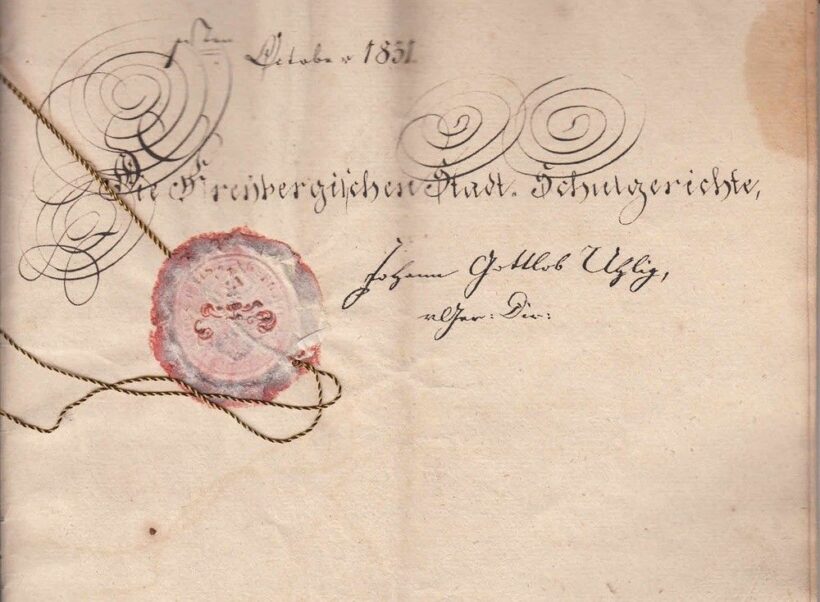 October 1831.
Die Freybergischen Stadt-Schulgerichte,
Johann Gottlob Uhlig,
Ger: Dir: